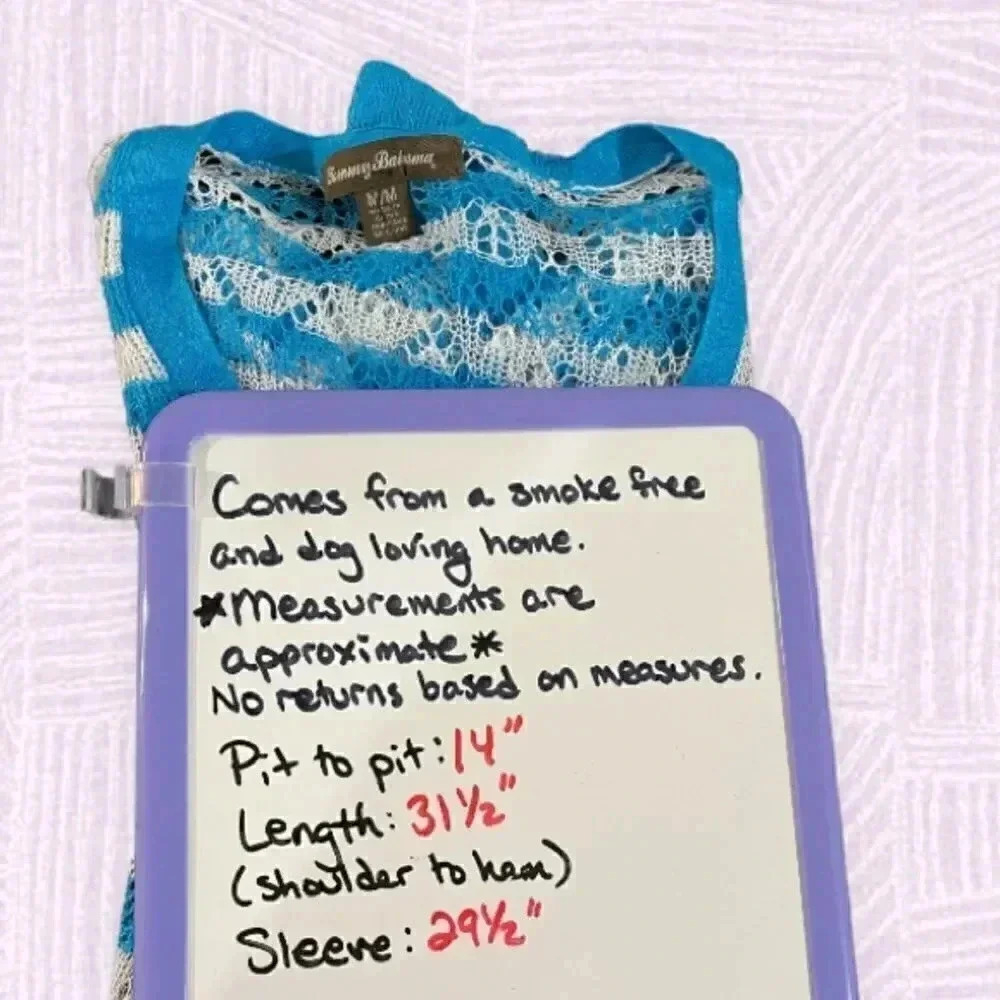 Tommy Bahama
M/M
Comes from a smoke free
and dog loving home.
*Measurements are
approximate*
No returns based on measures.
Pit to pit: 14"
Length: 31½"
(shoulder to hem)
Sleeve: 29½"